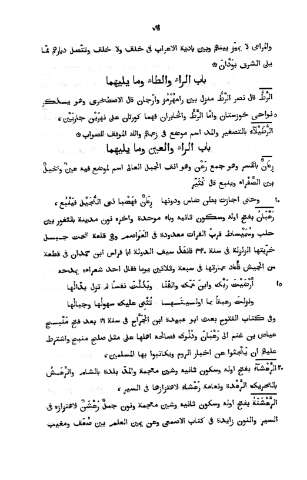 ٧٩١
والمراى لا يميّز بينهم وبين بادية الاعراب فى خلف ولا خلف وتتصل ديارهم مما
يلى الشرق بودّان ۞
باب الراء والطاء وما يليهما
الرُّطّ قال نصر الرُّطّ منزل بين رامهرمز وارجان قال الاصطخرى وهو يسلك
نواحى خوزستان وامّا الرُّطّ والخابران فهما كورتان على نهرين جاريين،
الرُّطَيْلاء بالتصغير والمدّ اسم موضع فى والله الموفق للصواب ۞
باب الراء والعين وما يليهما
رِعَانٌ بالكسر وهو جمع رَعْن وهو انف الجبل العالى اسم موضع فيه عين ونخيل
بين الصَّفْراء وينبع قال كُثَيّر
١٠ وحتى اجازت بطن ضاس ودونها رِعَانٌ فهضبا ذى النُّجَيْل فينبع،
رَعْبَانُ بفتح اوله وسكون ثانيه وباء موحدة واخره نون مدينة بالثغور بين
حلب وسُمَيْساط قرب الفرات معدودة فى العواصم وفى قلعة تحت جبل
خربتها الزلزلة فى سنة ٣٤٠ فانفذ سيف الدولة ابا فراس ابن حمدان فى قطعة
من الجيش فاعاد عمارتها فى سبعة وثلاثين يوما فقال احد شعراءه يمدحه
١٥ ارضيتَ ربّك وابن عمّك والقنا وبذلتَ نفسًا لم تزل بذّالها
ونزلتَ رعبانا بما اوليتَها تُثْنى عليك سهولُها وجبالُها
وفى كتاب الفتوح بعث ابو عبيدة ابن الجرّاح فى سنة ١٦ بعد فتح مَنْبِج
عياض بن غنم الى رَعْبان ودُلُوك فصالحه اهلها على مثل صلح منبج واشترط
عليهم ان يبحثوا عن اخبار الروم ويكاتبوا بها المسلمين،
٢٠ الرَّعْشَاء بفتح اوله وسكون ثانيه وشين معجمة والمدّ بلدة بالشام والرَّعَش
بالتحريك الرِّعْدة ونعامة رعشاء لاهتزازها فى السير،
الرَّعْشَنَة بفتح اوله وسكون ثانيه وشين معجمة ونون جمل رَعْشَن لاهتزازه فى
السير والنون زايدة فى كتاب الاصمعى ومن بين العلم بين ضُعْف ومغيب